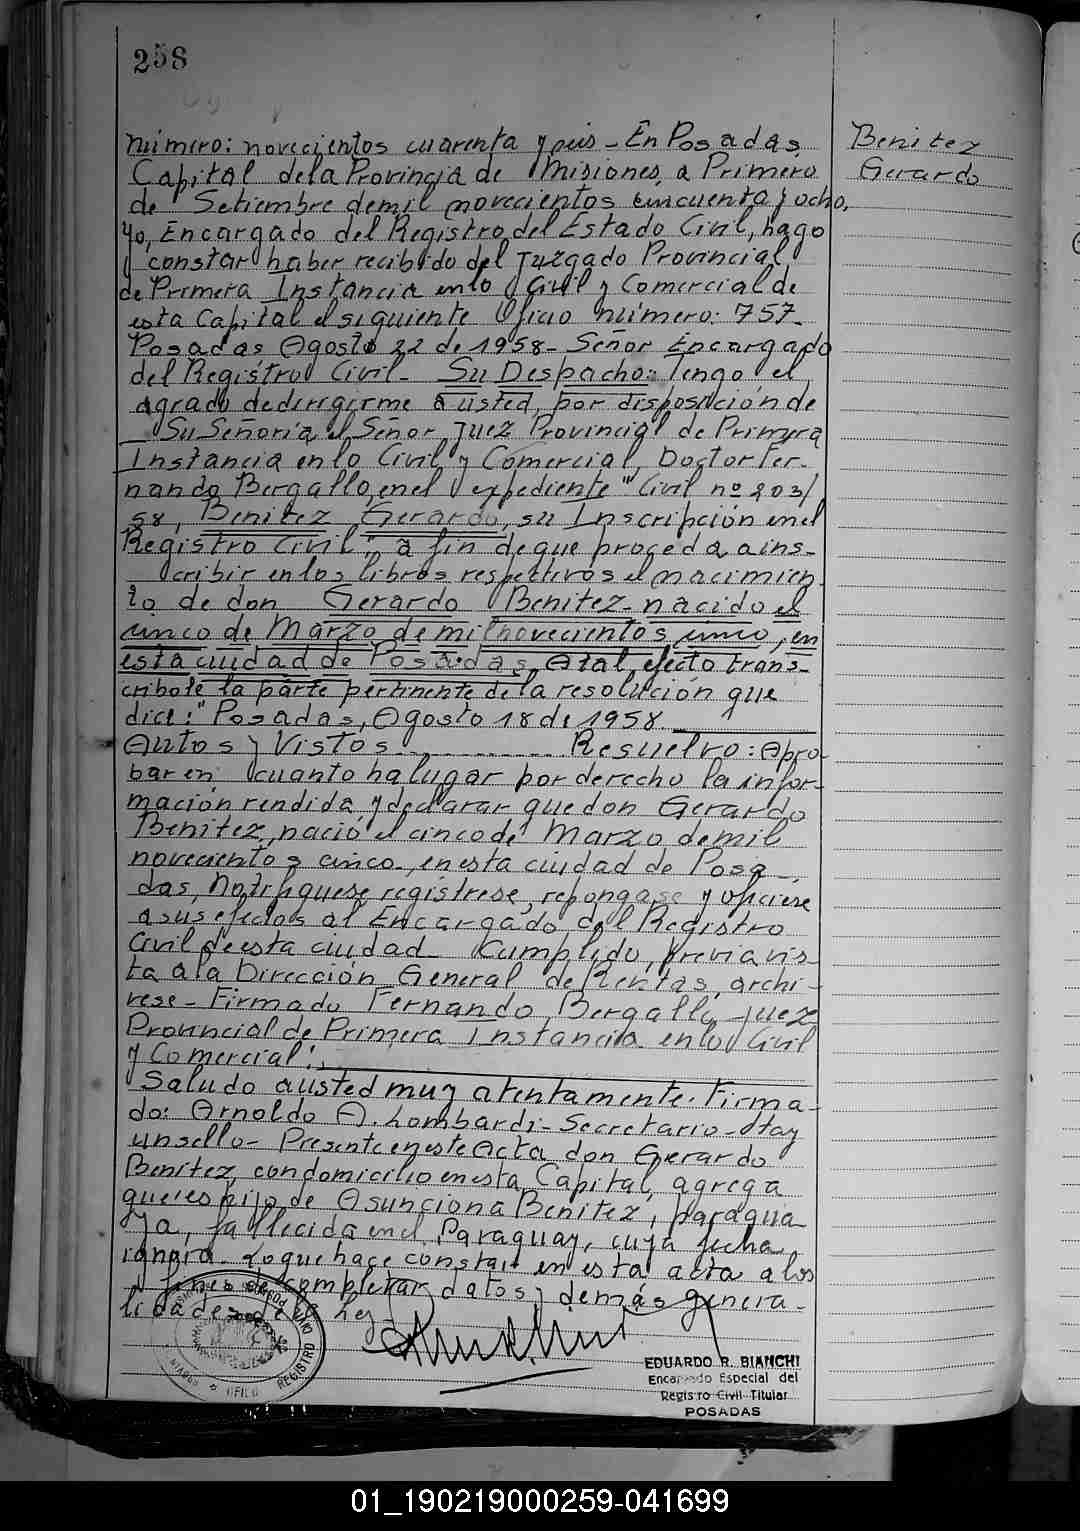 258
Número: novecientos cuarenta y seis - En Posadas,
Capital de la Provincia de Misiones, a Primero
de Setiembre de mil novecientos cincuenta y ocho,
Yo, Encargado del Registro del Estado Civil, hago
constar haber recibido del Juzgado Provincial
de Primera Instancia en lo Civil y Comercial de
esta Capital el siguiente Oficio número: 757-
Posadas Agosto 22 de 1958- Señor Encargado
del Registro Civil- Su Despacho: Tengo el
agrado de dirigirme a usted, por disposición de
Su Señoria el Señor Juez Provincial de Primera
Instancia en lo Civil y Comercial, Doctor Fer-
nando Bergallo, en el expediente "Civil nº 203/
58, Benitez Gerardo, su Inscripción en el
Registro Civil", a fin de que proceda a ins-
cribir en los libros respectivos el nacimien-
to de don Gerardo Benitez- nacido el
cinco de Marzo de mil novecientos cinco, en
esta ciudad de Posadas. A tal efecto trans-
cribole la parte pertinente de la resolución que
dice: "Posadas, Agosto 18 de 1958
Autos y Vistos ........ Resuelvo: Apro-
bar en cuanto ha lugar por derecho la infor-
mación rendida y declarar que don Gerardo
Benitez, nació el cinco de Marzo de mil
novecientos cinco, en esta ciudad de Posa-
das, Notifiquese, registrese, repongase y oficiese
a sus efectos al Encargado del Registro
Civil de esta ciudad- Cumplido, previa vis-
ta a la Dirección General de Rentas, archi-
vese- Firmado Fernando Bergallo, Juez
Provincial de Primera Instancia en lo Civil
y Comercial".
Saludo a usted muy atentamente. Firma-
do: Arnoldo A. Lombardi- Secretario- Hay
un sello- Presente en este Acta don Gerardo
Benitez, con domicilio en esta Capital, agrega
que es hijo de Asunciona Benitez, paragua-
ya, fallecida en el Paraguay, cuya fecha
ignora- Lo que hace constar en esta acta a los
fines de completar datos y demás genera-
lidades de Ley
Benitez
Gerardo
REGISTRO
EDUARDO R. BIANCHI
Encargado Especial del
Registro Civil Titular
POSADAS
01_190219000259-041699